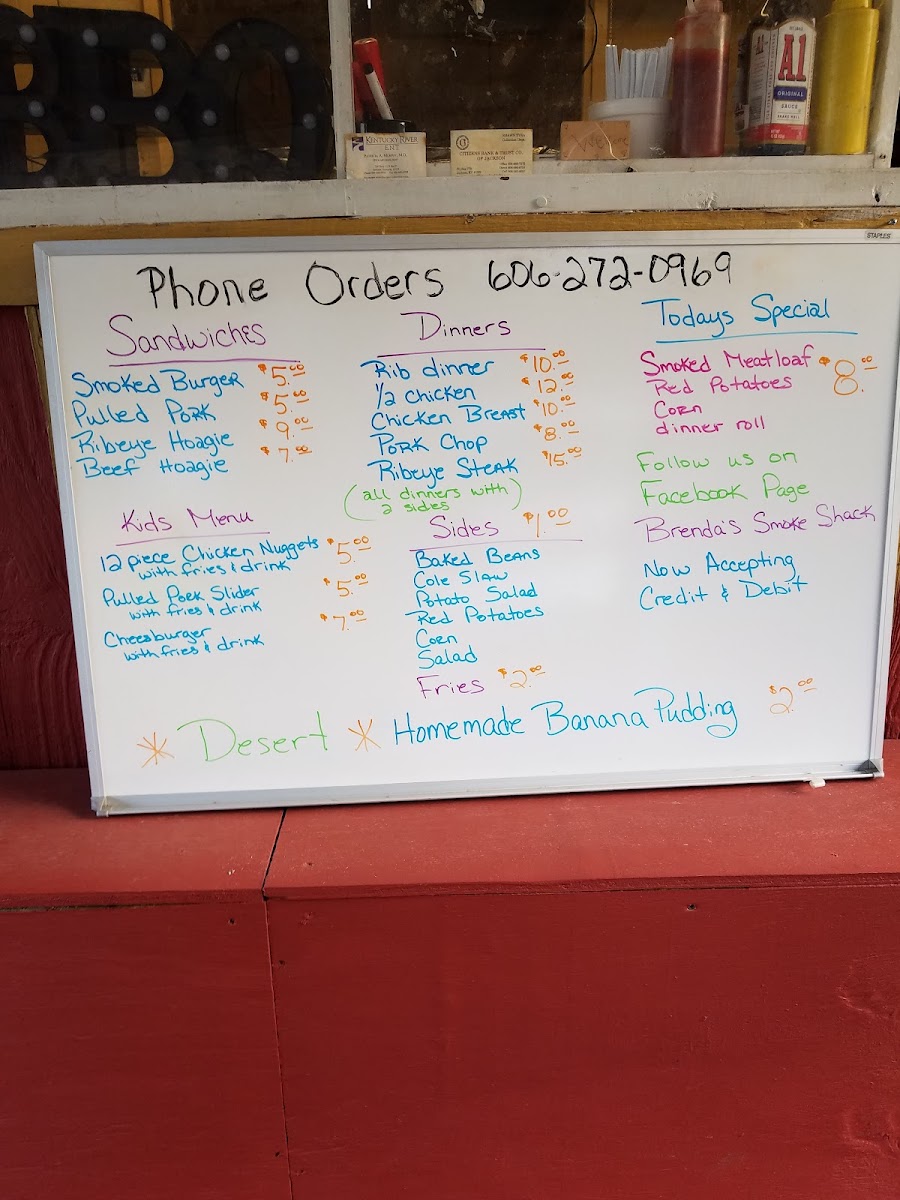 BBQ
KENTUCKY RIVER
ENT
CITIZENS BANK & TRUST CO.
OF JACKSON
Welcome
A1
ORIGINAL
SAUCE
STAPLES
Phone Orders 606-272-0969
Sandwiches
Smoked Burger $5.00
Pulled Pork $5.00
Ribeye Hoagie $9.00
Beef Hoagie $7.00
Kids Menu
12 piece Chicken Nuggets $5.00
with fries & drink
Pulled Pork Slider $5.00
with fries & drink
Cheesburger $7.00
with fries & drink
Dinners
Rib dinner $10.00
1/2 chicken $12.00
Chicken Breast $10.00
Pork Chop $8.00
Ribeye Steak $15.00
(all dinners with
2 sides)
Sides $1.00
Baked Beans
Cole Slaw
Potato Salad
Red Potatoes
Corn
Salad
Fries $2.00
Todays Special
Smoked Meatloaf $8.00
Red Potatoes
Corn
dinner roll
Follow us on
Facebook Page
Brenda's Smoke Shack
Now Accepting
Credit & Debit
* Desert * Homemade Banana Pudding $2.00